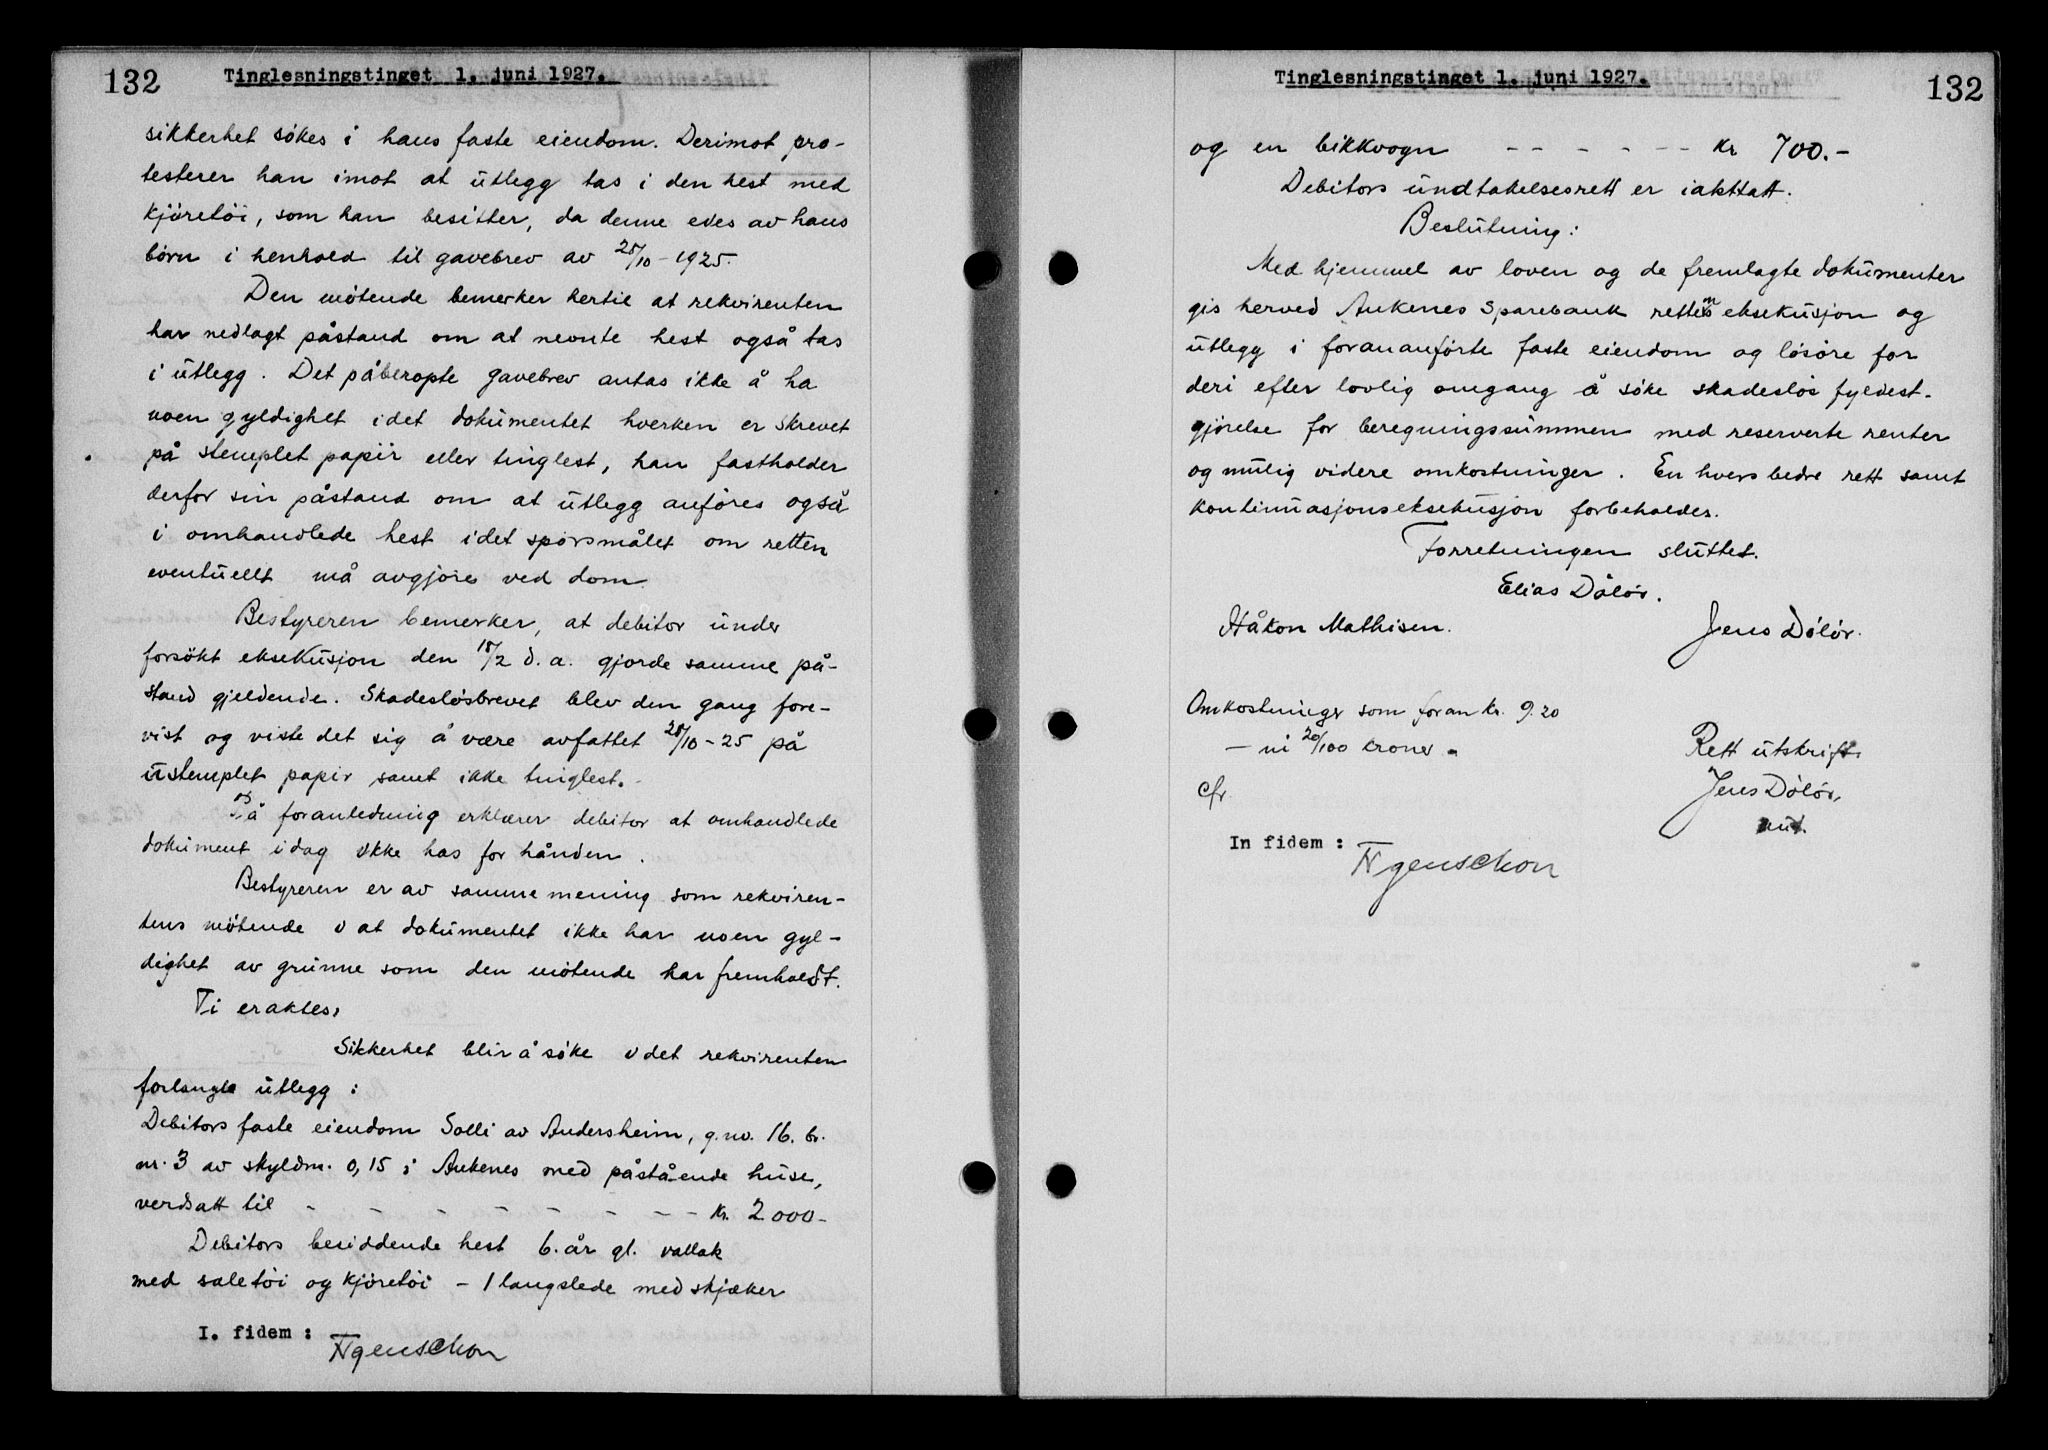 132
Tinglesningstinget 1. juni 1927.
sikkerhet søkes i hans faste eiendom. Derimot pro-
testerer han imot at utlegg tas i den hest med
kjøretøi, som han besitter, da denne eies av hans
børn i henhold til gavebrev av 25/10-1925.
Den møtende bemerker hertil at rekvirenten
har nedlagt påstand om at nevnte hest også tas
i utlegg. Det påberopte gavebrev antas ikke å ha
noen gyldighet idet dokumentet hverken er skrevet
på stemplet papir eller tinglest, han fastholder
derfor sin påstand om at utlegg anføres også
i omhandlede hest idet spørsmålet om retten
eventuellt må avgjøres ved dom.
Bestyreren bemerker, at debitor under
forsøkt eksekusjon den 18/2 d.a. gjorde samme på-
stand gjeldende. Skadesløsbrevet blev den gang fore-
vist og viste det sig å være avfattet 28/10-25 på
ustemplet papir samt ikke tinglest.
På foranledning erklærer debitor at omhandlede
dokument idag ikke has for hånden.
Bestyreren er av samme mening som rekviren-
tens møtende i at dokumentet ikke har noen gyl-
dighet av grunne som den møtende har fremholdt.
Ti eraktes,
Sikkerhet blir å søke i det rekvirenten
forlangte utlegg:
Debitors faste eiendom Solli av Andersheim, g.no. 16. br.
nr. 3 av skyldm. 0,15 i Ankenes med påstående huse,
verdsatt til - - - - - - - - Kr. 2000-
Debitors besiddende hest 6. år gl. vallak
med seletøi og kjøretøi - 1 langslede med skjæker
I. fidem:
132
Tinglesningstinget 1. juni 1927.
og en bikkvogn - - - - - - Kr 700.-
Debitors undtakelsesrett er iakttatt.
Beslutning:
Med hjemmel av loven og de fremlagte dokumenter
gis herved Ankenes Sparebank retten eksekusjon og
utlegg i forananførte faste eiendom og løsøre for
deri efter lovlig omgang å søke skadesløs fyldest-
gjørelse for beregningssummen med reserverte renter
og mulig videre omkostninger. En hvers bedre rett samt
kontinuasjonseksekusjon forbeholdes.
Forretningen sluttet.
Elias Dåløv.
Håkon Mathisen. Jens Døløv.
Omkostninger som foran kr. 9.20
- ni 20/100 kroner.
Rett utskrift.
cfr.
Jens Døløv,
In fidem: